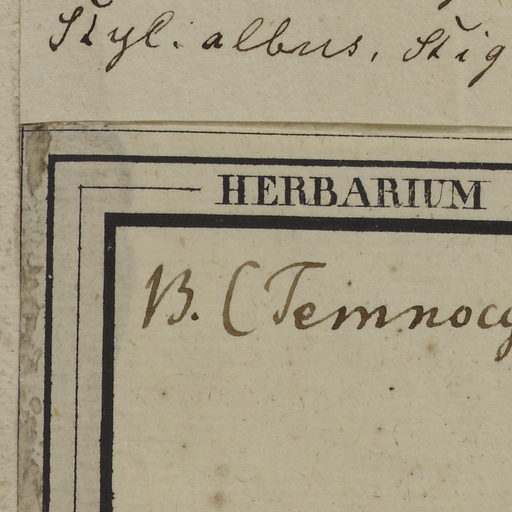 Styl. albus, Stig
HERBARIUM
B. (Temnocy